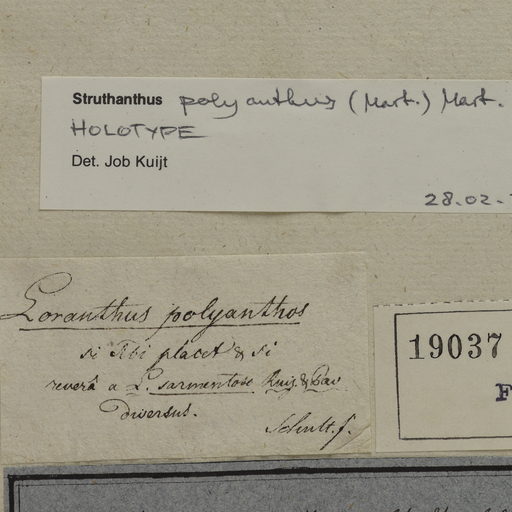 Struthanthus polyanthus (Mart.) Mart.
HOLOTYPE
Det. Job Kuijt
28.02.
Loranthus polyanthos
si Tibi placet & si
reverâ a L. sarmentose Ruiz. & Pav
diversus.
Schult. f.
19037
F